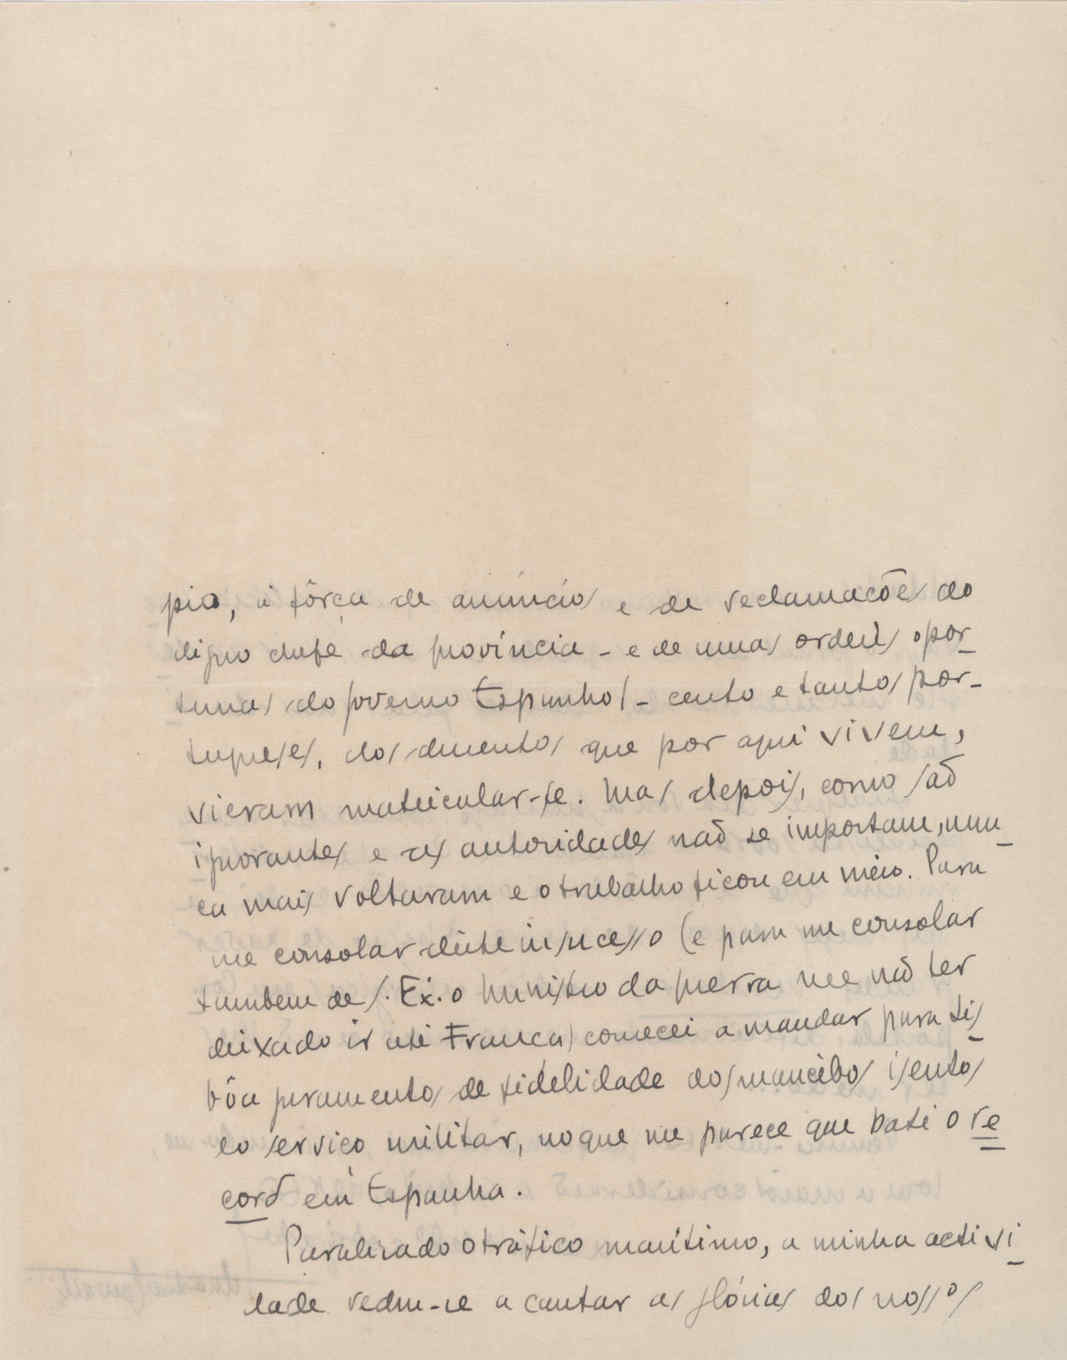 pio, á fôrça de anúncios e de reclamacões do
digno chefe da província - e de umas ordens opor-
tunas do governo Espanhol - cento e tantos por-
tugueses, dos duzentos que por aqui vivem,
vieram matricular-se. Mas depois, como são
ignorantes e as autoridades não se importam, nun-
ca mais voltaram e o trabalho ficou em meio. Para
me consolar dêste insucesso (e para me consolar
tambem de S. Ex. o Ministro da guerra me não ter
deixado ir até França) comecei a mandar para Lis-
bôa juramentos de fidelidade dos mancêbos isentos
do serviço militar, no que me parece que bati o re
cord em Espanha.
Paralizado o tráfico marítimo, a minha activi-
dade reduz-se a cantar as glórias dos nossos